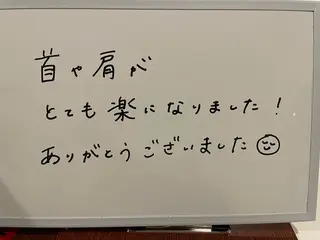 首や肩が
とても楽になりました!
ありがとうございました